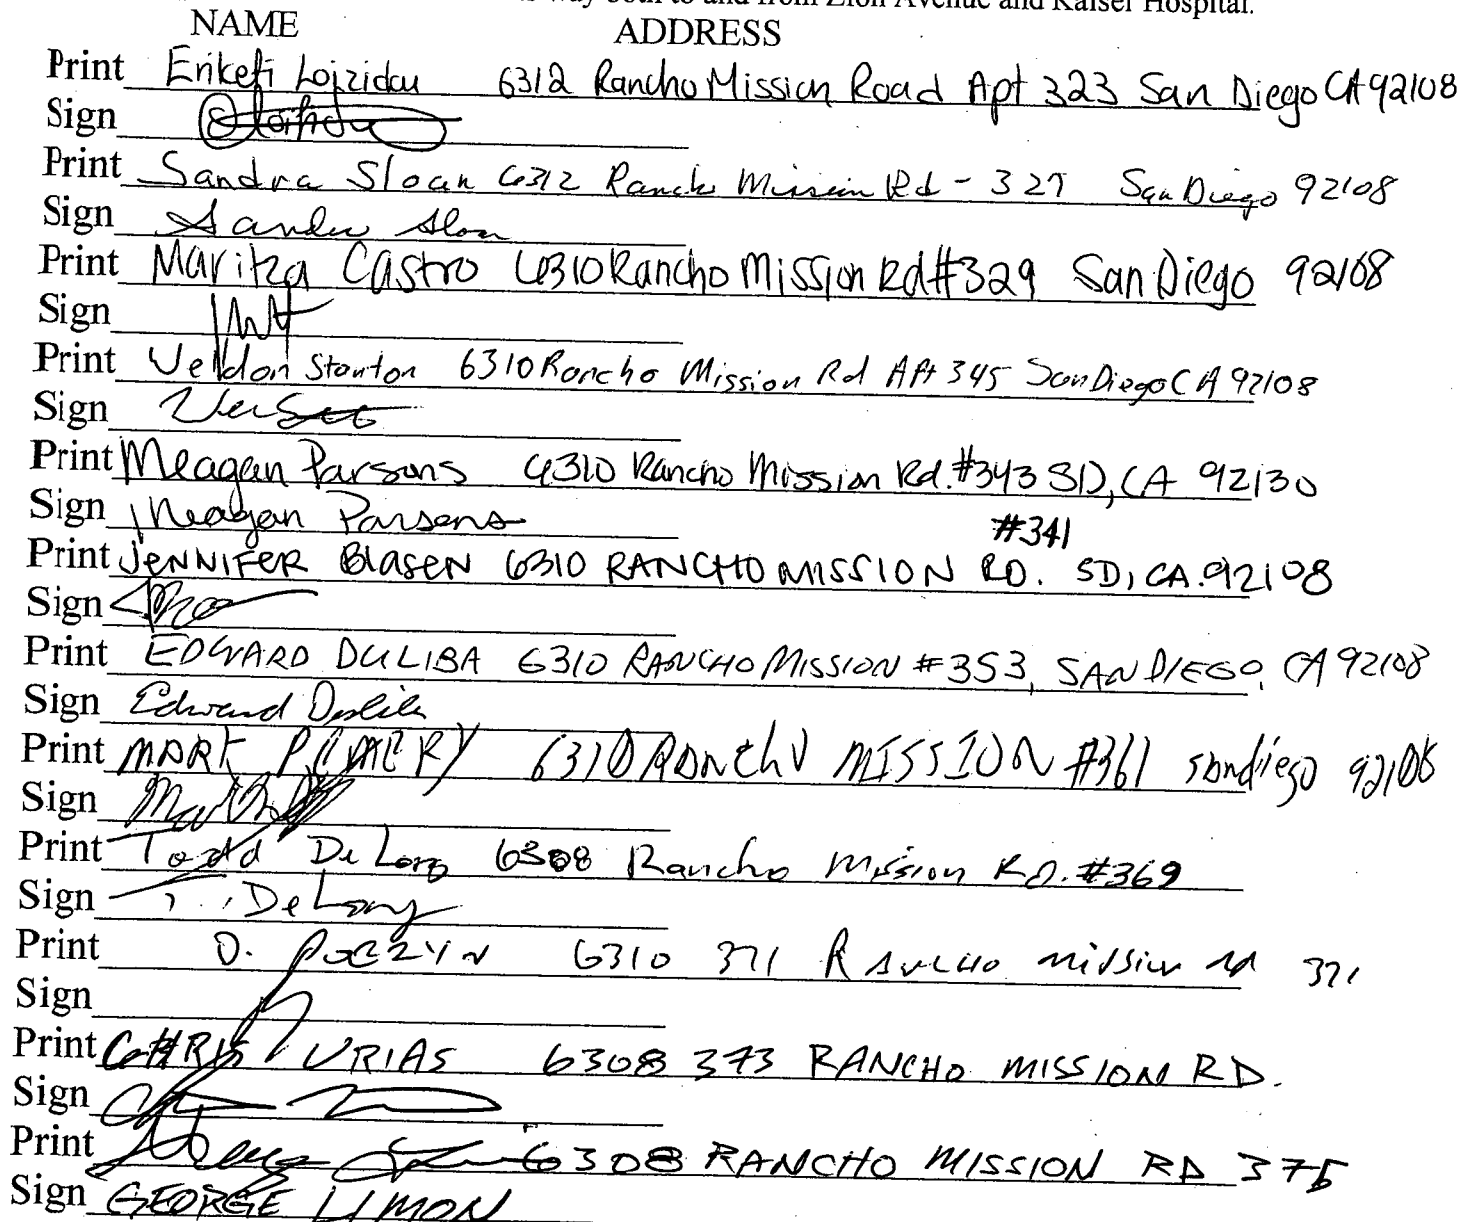 way both to and from Zion Avenue and Kaiser Hospital.
NAME ADDRESS
Print Eriketi Loizidou 6312 Rancho Mission Road Apt 323 San Diego CA 92108
Sign
Print Sandra Sloan 6312 Rancho Mission Rd - 327 San Diego 92108
Sign Sandra Sloan
Print Maritza Castro 6310 Rancho Mission Rd #329 San Diego 92108
Sign
Print Veldon Stanton 6310 Rancho Mission Rd Apt 345 San Diego CA 92108
Sign
Print Meagan Parsons 6310 Rancho Mission Rd. #343 SD, CA 92130
Sign Meagan Parsons
#341
Print JENNIFER BLASEN 6310 RANCHO MISSION RD. SD, CA. 92108
Sign
Print EDWARD DULIBA 6310 RANCHO MISSION #353, SAN DIEGO, CA 92108
Sign Edward Duliba
Print MARK 6310 RANCHO MISSION #361 san diego 92108
Sign
Print Todd DeLong 6308 Rancho Mission RD. #369
Sign T. DeLong
Print 6310 371 Rancho mission rd 371
Sign
Print CHRIS URIAS 6308 373 RANCHO MISSION RD.
Sign
Print 6308 RANCHO MISSION RD 375
Sign GEORGE LIMON